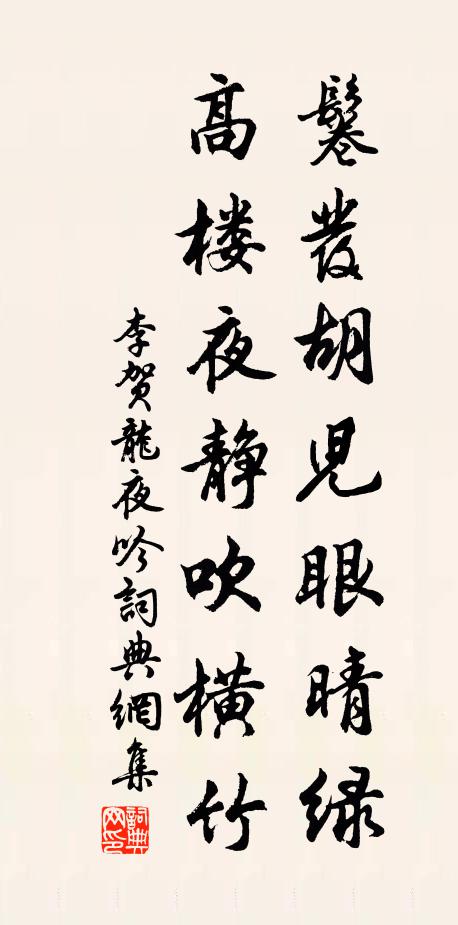 鬈發胡児眼晴绿
高楼夜静吹横竹
李贺龍夜吟詞典網集
詞典网印